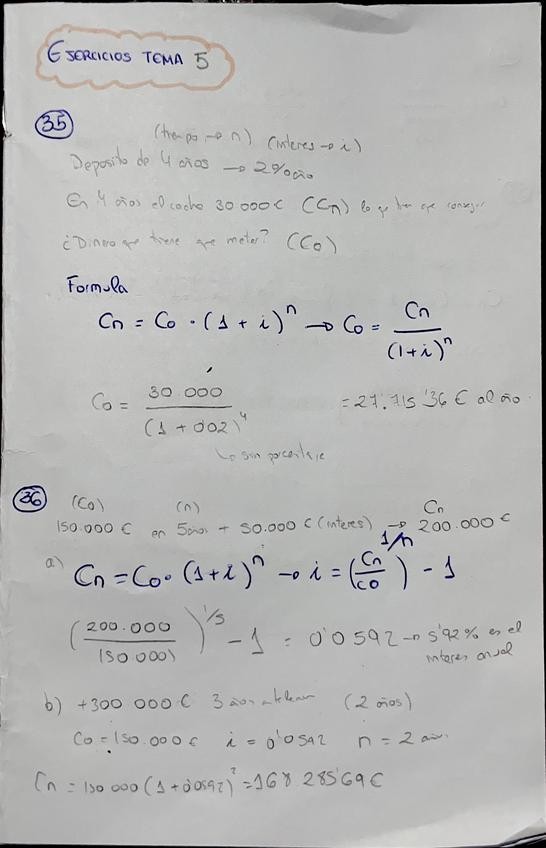 EJERCICIOS TEMA 5
35
(tiempo → n) (interes → i)
Deposito de 4 años → 2% año
En 4 años el coche 30 000€ (Cn) lo que tien que conseguir
¿Dinero que tiene que meter? (Co)
Formula
Cn = Co · (1 + i)^n → Co = Cn / (1+i)^n
Co = 30.000 / (1 + 0'02)^4 = 27.715'36 € al año.
↳ sin porcentaje
36 (Co) (n) Cn
150.000 € en 5 años + 50.000 € (interes) → 200.000 €
a) Cn = Co · (1+i)^n → i = (Cn/Co)^1/n - 1
(200.000 / 150.000)^1/5 - 1 = 0'0592 → 5'92% es el
interes anual
b) +300 000 € 3 años (2 años)
Co = 150.000 € i = 0'0592 n = 2 años.
Cn = 150 000 (1 + 0'0592)^2 = 168 285'69 €